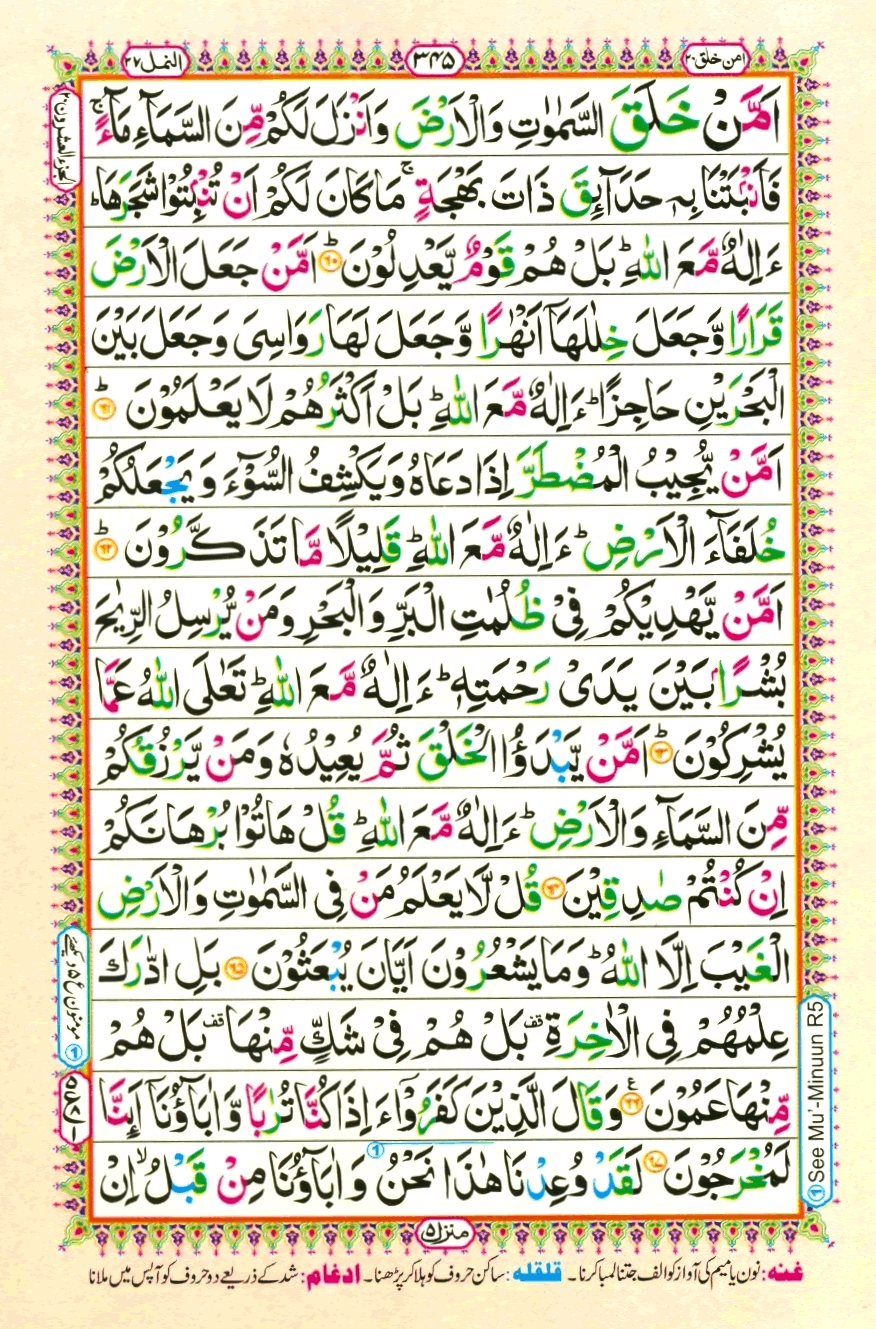 امن خلق ۲۰
۳۴۵
النمل ۲۷
اَمَّنْ خَلَقَ السَّمٰوٰتِ وَالْاَرْضَ وَاَنْزَلَ لَكُمْ مِّنَ السَّمَآءِ مَآءً ۚ
فَاَنْۢبَتْنَا بِهٖ حَدَآئِقَ ذَاتَ بَهْجَةٍ ۚ مَا كَانَ لَكُمْ اَنْ تُنْۢبِتُوْا شَجَرَهَا ؕ
ءَاِلٰهٌ مَّعَ اللّٰهِ ؕ بَلْ هُمْ قَوْمٌ يَّعْدِلُوْنَ ؕ ۶۰ اَمَّنْ جَعَلَ الْاَرْضَ
قَرَارًا وَّجَعَلَ خِلٰلَهَاۤ اَنْهٰرًا وَّجَعَلَ لَهَا رَوَاسِىَ وَجَعَلَ بَيْنَ
الْبَحْرَيْنِ حَاجِزًا ؕ ءَاِلٰهٌ مَّعَ اللّٰهِ ؕ بَلْ اَكْثَرُهُمْ لَا يَعْلَمُوْنَ ؕ ۶۱
اَمَّنْ يُّجِيْبُ الْمُضْطَرَّ اِذَا دَعَاهُ وَيَكْشِفُ السُّوْٓءَ وَيَجْعَلُكُمْ
خُلَفَآءَ الْاَرْضِ ؕ ءَاِلٰهٌ مَّعَ اللّٰهِ ؕ قَلِيْلًا مَّا تَذَكَّرُوْنَ ؕ ۶۲
اَمَّنْ يَّهْدِيْكُمْ فِىْ ظُلُمٰتِ الْبَرِّ وَالْبَحْرِ وَمَنْ يُّرْسِلُ الرِّيٰحَ
بُشْرًاۢ بَيْنَ يَدَىْ رَحْمَتِهٖ ؕ ءَاِلٰهٌ مَّعَ اللّٰهِ ؕ تَعٰلَى اللّٰهُ عَمَّا
يُشْرِكُوْنَ ؕ ۶۳ اَمَّنْ يَّبْدَؤُا الْخَلْقَ ثُمَّ يُعِيْدُهٗ وَمَنْ يَّرْزُقُكُمْ
مِّنَ السَّمَآءِ وَالْاَرْضِ ؕ ءَاِلٰهٌ مَّعَ اللّٰهِ ؕ قُلْ هَاتُوْا بُرْهَانَكُمْ
اِنْ كُنْتُمْ صٰدِقِيْنَ ۶۴ قُلْ لَّا يَعْلَمُ مَنْ فِى السَّمٰوٰتِ وَالْاَرْضِ
الْغَيْبَ اِلَّا اللّٰهُ ؕ وَمَا يَشْعُرُوْنَ اَيَّانَ يُبْعَثُوْنَ ۶۵ بَلِ ادّٰرَكَ
عِلْمُهُمْ فِى الْاٰخِرَةِ ۫ بَلْ هُمْ فِىْ شَكٍّ مِّنْهَا ۫ بَلْ هُمْ
مِّنْهَا عَمُوْنَ ۶۶ وَقَالَ الَّذِيْنَ كَفَرُوْۤا ءَاِذَا كُنَّا تُرٰبًا وَّاٰبَآؤُنَاۤ اَئِنَّا
لَمُخْرَجُوْنَ ۶۷ لَقَدْ وُعِدْنَا هٰذَا نَحْنُ وَاٰبَآؤُنَا مِنْ قَبْلُ ۙ اِنْ
الجزء العشرون ۲۰
① See Mu'-Minuun R5
منزل ۵
غنه: نون یا میم کی آواز کو الف جتنا لمبا کرنا۔ قلقله: ساکن حروف کو ہلا کر پڑھنا۔ ادغام: شد کے ذریعے دو حروف کو آپس میں ملانا